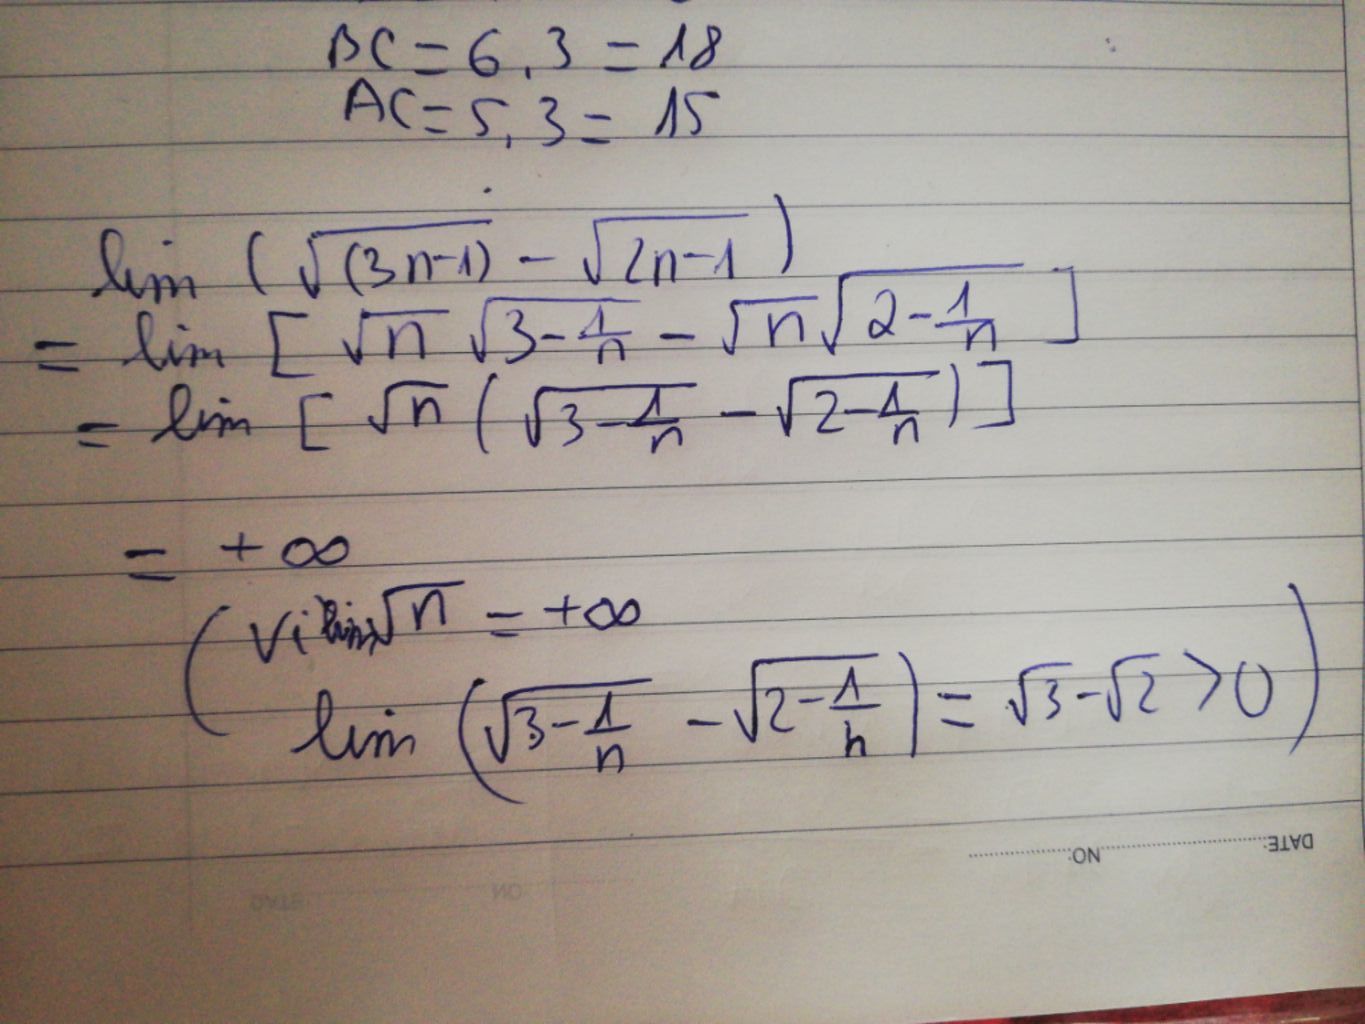 BC = 6.3 = 18
AC = 5.3 = 15
lim (√(3n-1) - √2n-1)
= lim [√n √3-1/n - √n √2-1/n]
= lim [√n (√3-1/n - √2-1/n)]
= +∞
(Vì lim √n = +∞
lim (√3-1/n - √2-1/n) = √3-√2 > 0)
DATE: NO: